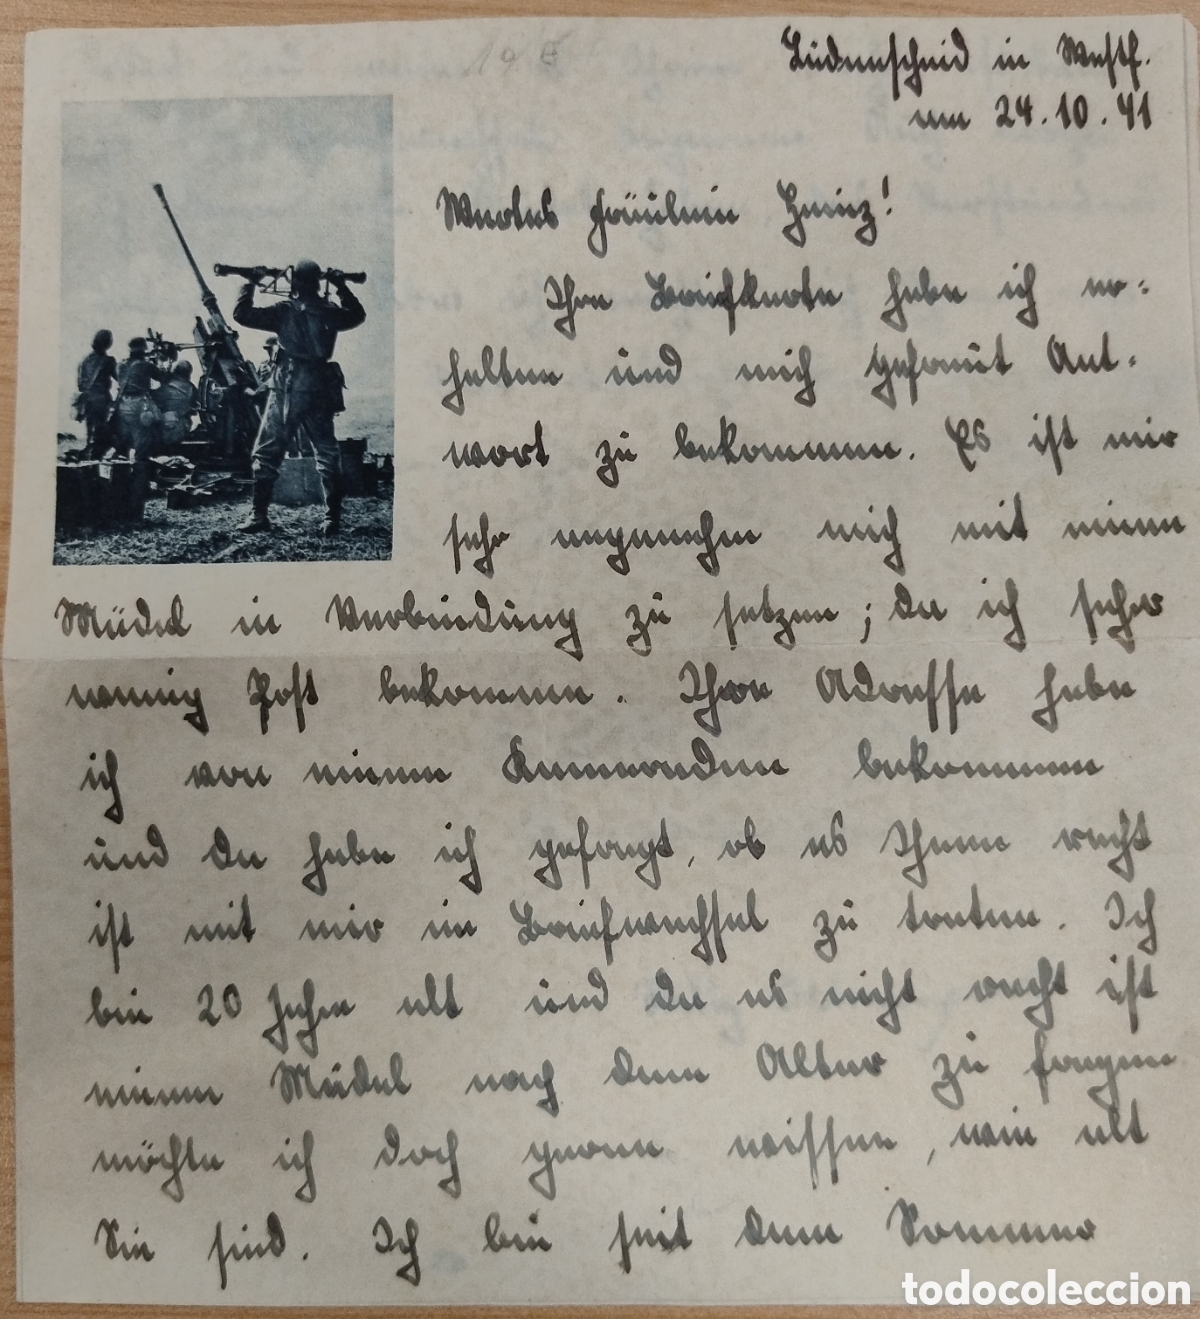 Lüdenscheid in Westf.
am 24.10.41
Wertes Fräulein Heinz!
Ihre Briefkarte habe ich er-
halten und mich gefreut Ant-
wort zu bekommen. Es ist mir
sehr angenehm mich mit einem
Mädel in Verbindung zu setzen; da ich sehr
wenig Post bekomme. Ihre Adresse habe
ich von einem Kameraden bekommen
und da habe ich gefragt, ob es Ihnen recht
ist mit mir im Briefwechsel zu treten. Ich
bin 20 Jahre alt und da es nicht recht ist
einem Mädel nach dem Alter zu fragen
möchte ich doch gerne wissen, wie alt
Sie sind. Ich bin seit dem Sommer
todocoleccion